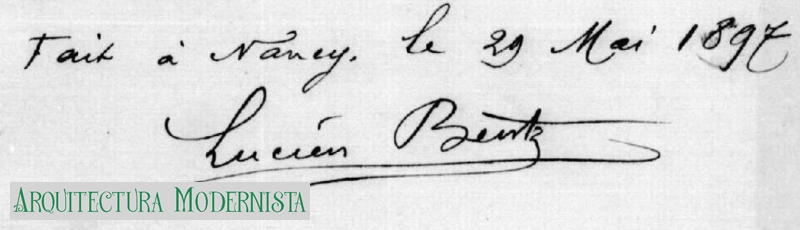 Fait à Nancy. le 29 Mai 1897
Lucien Bentz
ARQUITECTURA MODERNISTA